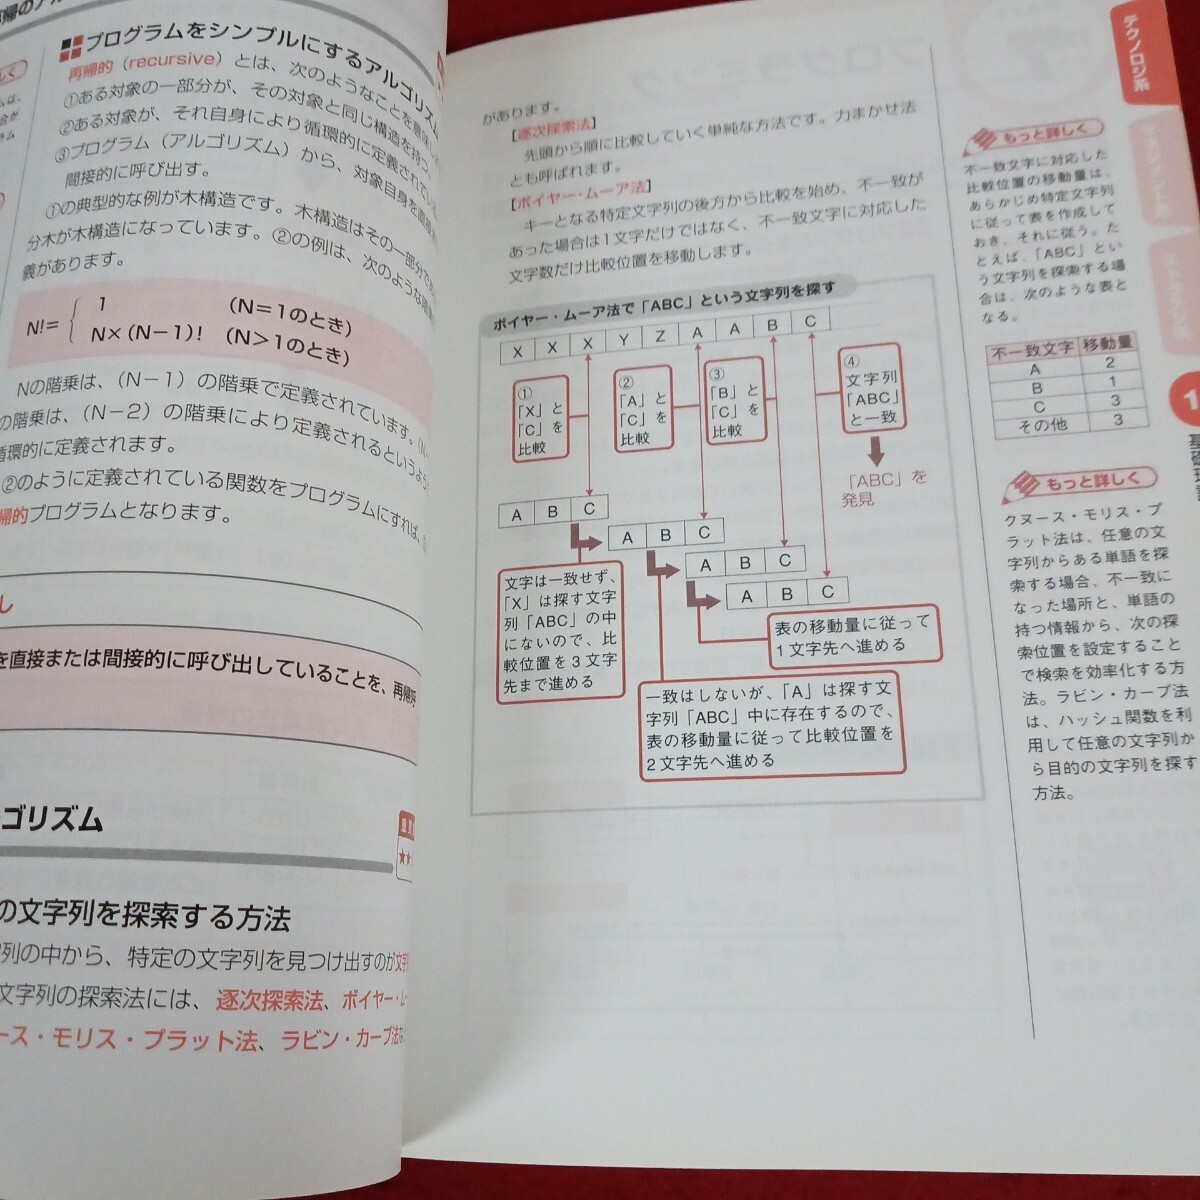 プログラムをシンプルにするアルゴリズム
再帰的（recursive）とは、次のようなことを意味し
①ある対象の一部分が、その対象と同じ構造を持つ
②ある対象が、それ自身により循環的に定義されてい
③プログラム（アルゴリズム）から、対象自身を直接
間接的に呼び出す。
①の典型的な例が木構造です。木構造はその一部分で
分木が木構造になっています。②の例は、次のような
義があります。
N!＝
1 （N＝1のとき）
N×（N－1）! （N＞1のとき）
Nの階乗は、（N－1）の階乗で定義されています。
の階乗は、（N－2）の階乗により定義されるというよ
循環的に定義されます。
②のように定義されている関数をプログラムにすれば、
帰的プログラムとなります。
し
を直接または間接的に呼び出していることを、再帰呼
ゴリズム
の文字列を探索する方法
列の中から、特定の文字列を見つけ出すのが文字
文字列の探索法には、逐次探索法、ボイヤー・ム
ース・モリス・プラット法、ラビン・カープ法
があります。
［逐次探索法］
先頭から順に比較していく単純な方法です。力まかせ法
とも呼ばれます。
［ボイヤー・ムーア法］
キーとなる特定文字列の後方から比較を始め、不一致が
あった場合は1文字だけではなく、不一致文字に対応した
文字数だけ比較位置を移動します。
ボイヤー・ムーア法で「ABC」という文字列を探す
X X X Y Z A A B C
①
「X」と
「C」を
比較
②
「A」と
「C」を
比較
③
「B」と
「C」を
比較
④
文字列
「ABC」
と一致
「ABC」を
発見
A B C
A B C
A B C
A B C
文字は一致せず、
「X」は探す文字
列「ABC」の中
にないので、比
較位置を3文字
先まで進める
表の移動量に従って
1文字先へ進める
一致はしないが、「A」は探す文
字列「ABC」中に存在するので、
表の移動量に従って比較位置を
2文字先へ進める
テクノロジ系
もっと詳しく
不一致文字に対応した
比較位置の移動量は、
あらかじめ特定文字列
に従って表を作成して
おき、それに従う。た
とえば、「ABC」とい
う文字列を探索する場
合は、次のような表と
なる。
不一致文字 移動量
A 2
B 1
C 3
その他 3
1
もっと詳しく
クヌース・モリス・プ
ラット法は、任意の文
字列からある単語を探
索する場合、不一致に
なった場所と、単語の
持つ情報から、次の探
索位置を設定すること
で検索を効率化する方
法。ラビン・カープ法
は、ハッシュ関数を利
用して任意の文字列か
ら目的の文字列を探す
方法。